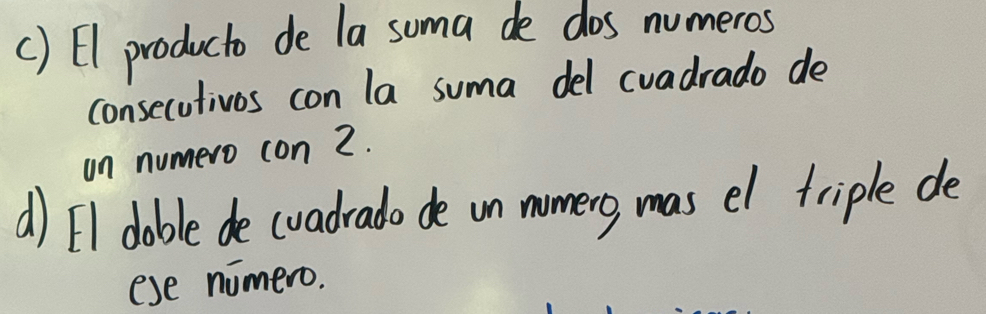 c) El producto de la suma de dos numeros
consecutivos con la suma del cuadrado de
un numero con 2.
d) El doble de cuadrado de un numero, mas el triple de
ese número.